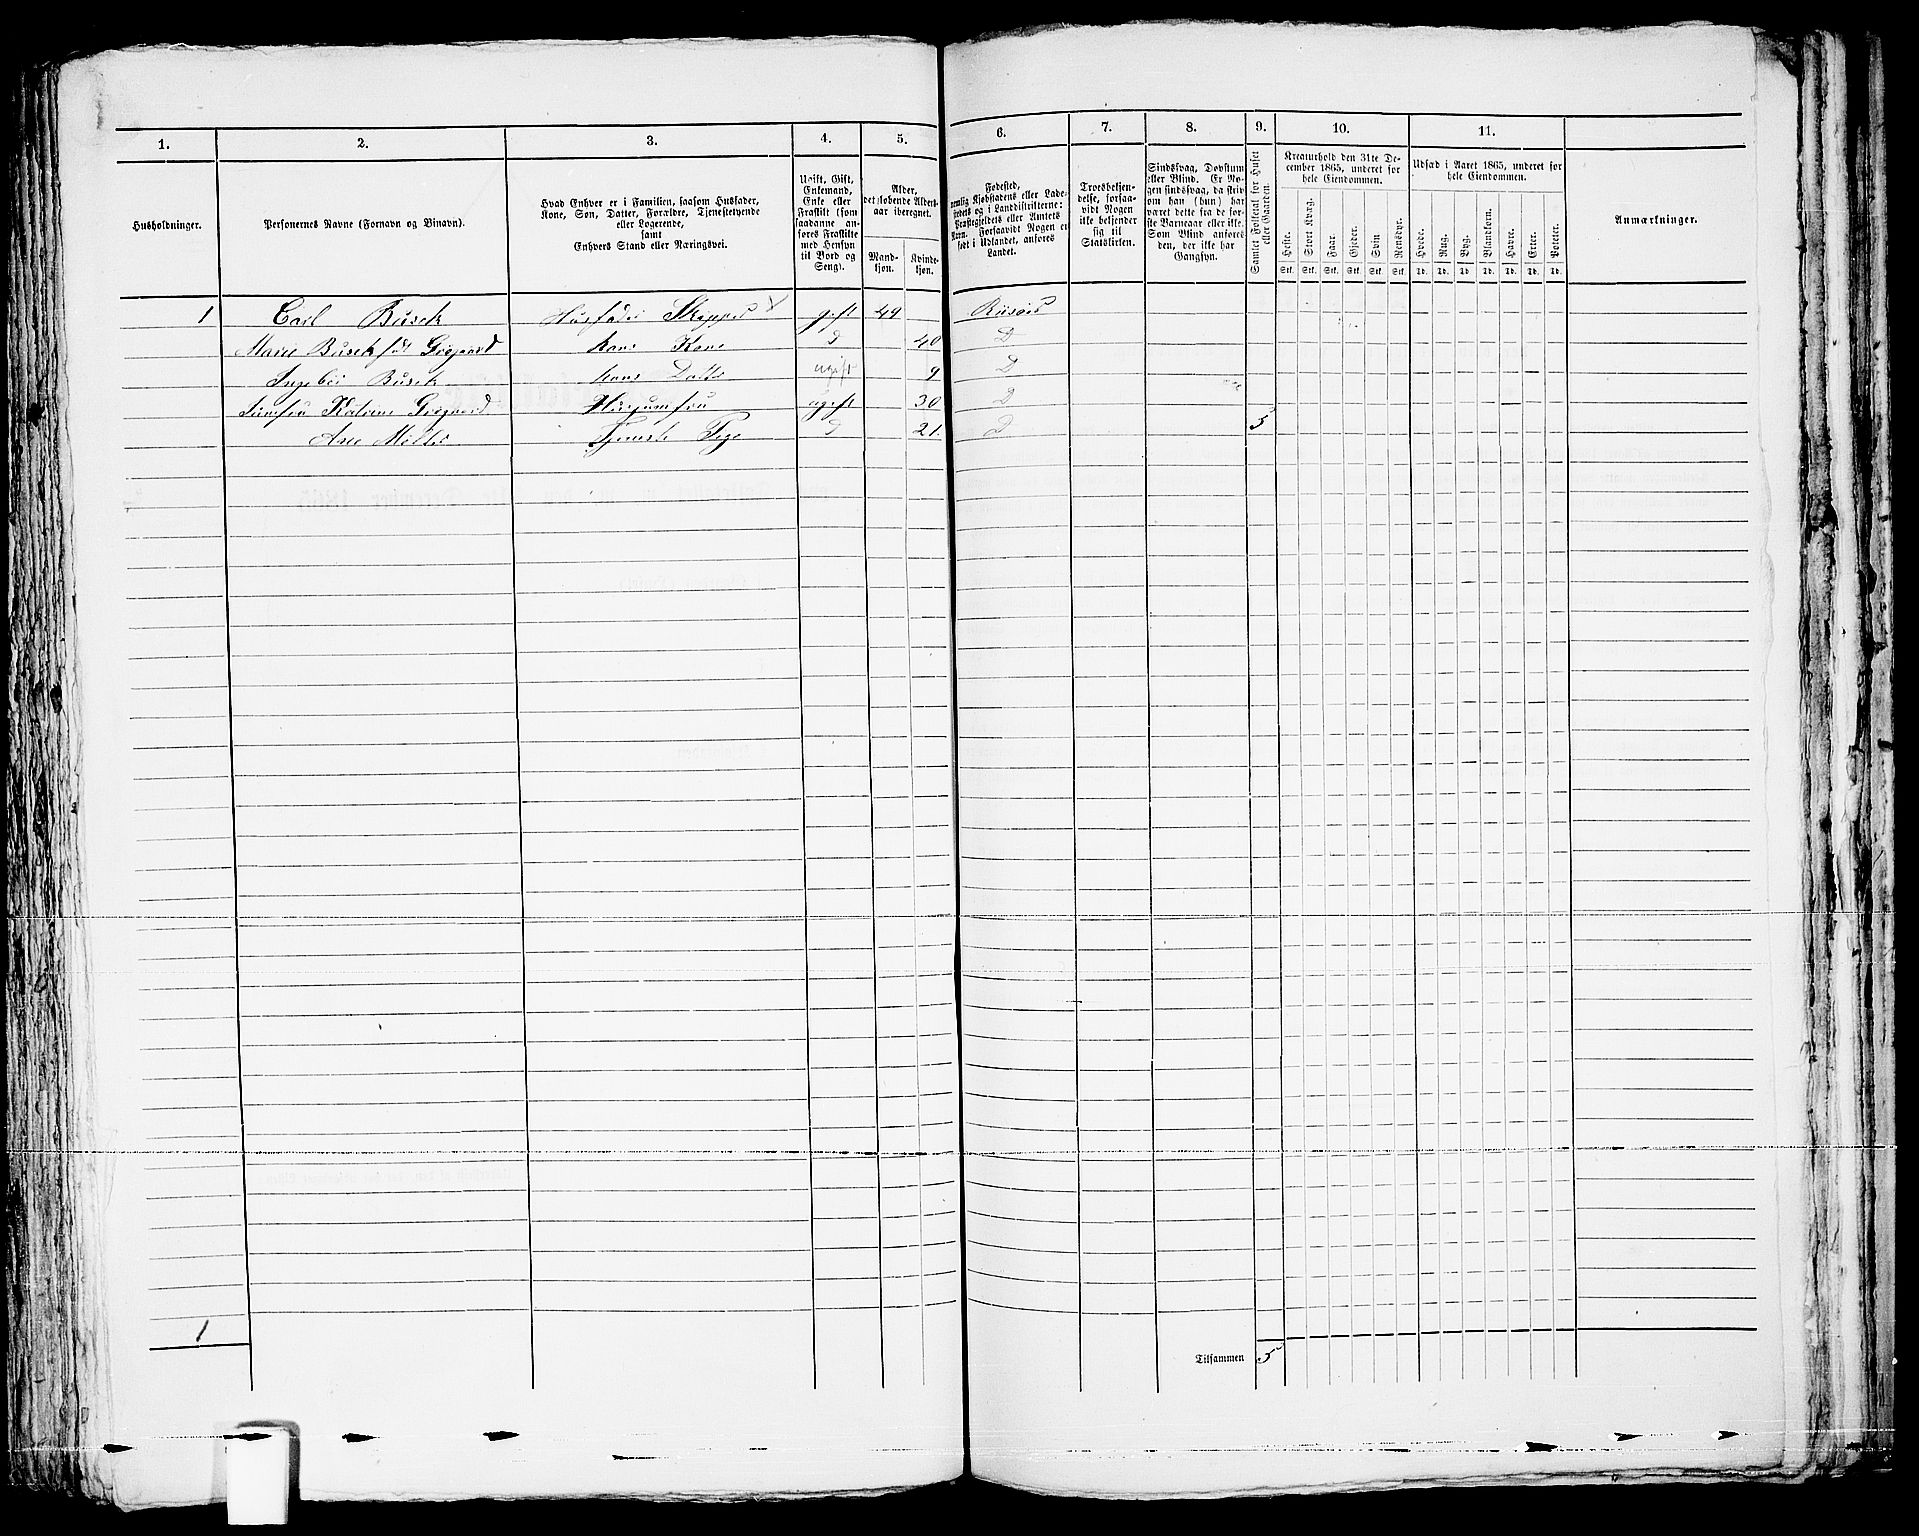 1. 2. 3. 4. 5. 6. 7. 8. 9. 10. 11.
Husholdninger.
Personernes Navne (Fornavn og Binavn).
Hvad Enhver er i Familien, saasom Husfader,
Kone, Søn, Datter, Forældre, Tjenestetyende
eller Logerende,
samt
Enhvers Stand eller Næringsvei.
Ugift, Gift,
Enkemand,
Enke eller
Fraskilt (som
saadanne an-
føres Fraskilte
med Hensyn
til Bord og
Seng).
Alder,
det løbende Alders-
aar iberegnet.
Mand-
kjøn.
Kvinde-
kjøn.
Fødested,
nemlig Kjøbstadens eller Lade-
stedets og i Landdistrikterne:
Præstegjeldets eller Amtets
Navn. Forsaavidt Nogen er
født i Udlandet, anføres
Landet.
Troesbekjen-
delse, forsaa-
vidt Nogen
ikke bekjender
sig til
Statskirken.
Sindssvag, Døvstum
eller Blind. Er No-
gen sindssvag, da skriv
om han (hun) har
været dette fra de før-
ste Barneaar eller ikke.
Som Blind anføres
den, der ikke har
Gangsyn.
Samlet Folketal for Huset
eller Gaarden.
Kreaturhold den 31te De-
cember 1865, underet for
hele Eiendommen.
Heste. Stort Kvæg. Faar. Gjeder. Svin Rensdyr.
Stk. Stk. Stk. Stk. Stk. Stk.
Udsæd i Aaret 1865, underet for
hele Eiendommen.
Hvede. Rug. Byg. Blandkorn. Havre. Erter. Poteter.
Td. Td. Td Td. Td. Td. Td.
Anmærkninger.
1 Carl Busck Husfader Skipper gift 49 Risøer
Marie Busck født hans Kone D 40 D
Busck hans Datter ugift 9 D
Jumfru Katrine Husjumfru ugift 30 D
Møller Tjeneste Pige D 21. D 5
1
Tilsammen 5